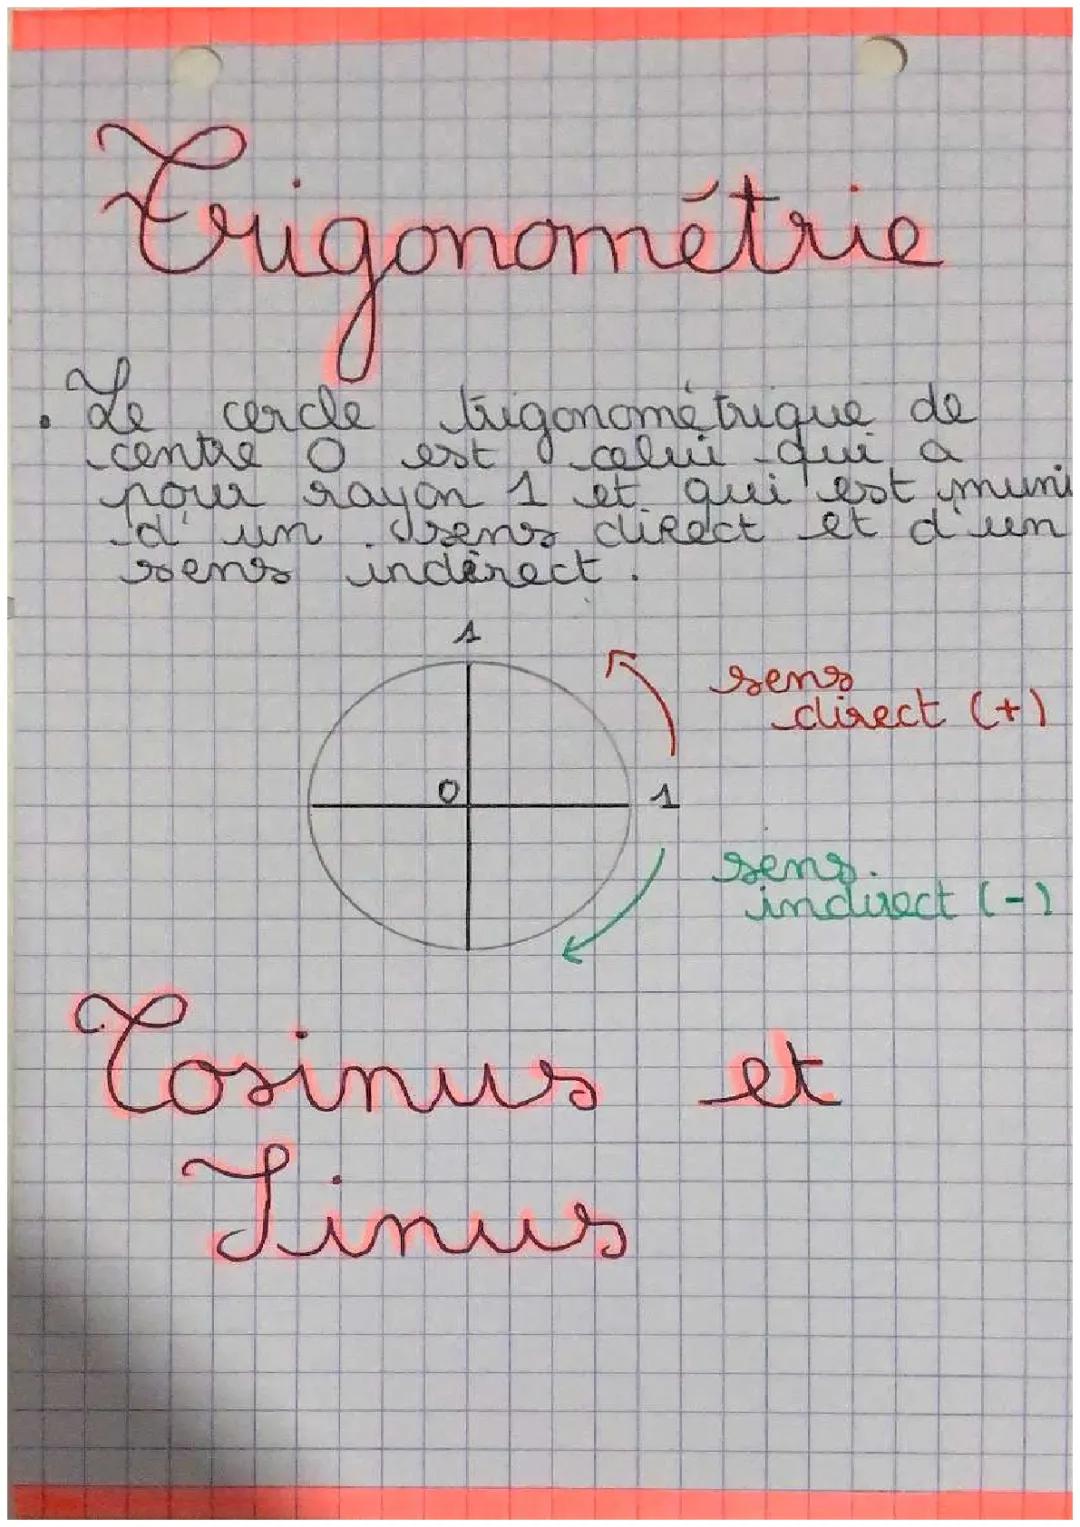 Trigonométrie
. Le cercle trigonométrique de
centre O est celui qui a
pour rayon 1 et qui est muni
d'un sens direct et d'un
sens indirect.
1
sens
direct (+)
O 1
sens
indirect (-)
Cosinus et
Sinus